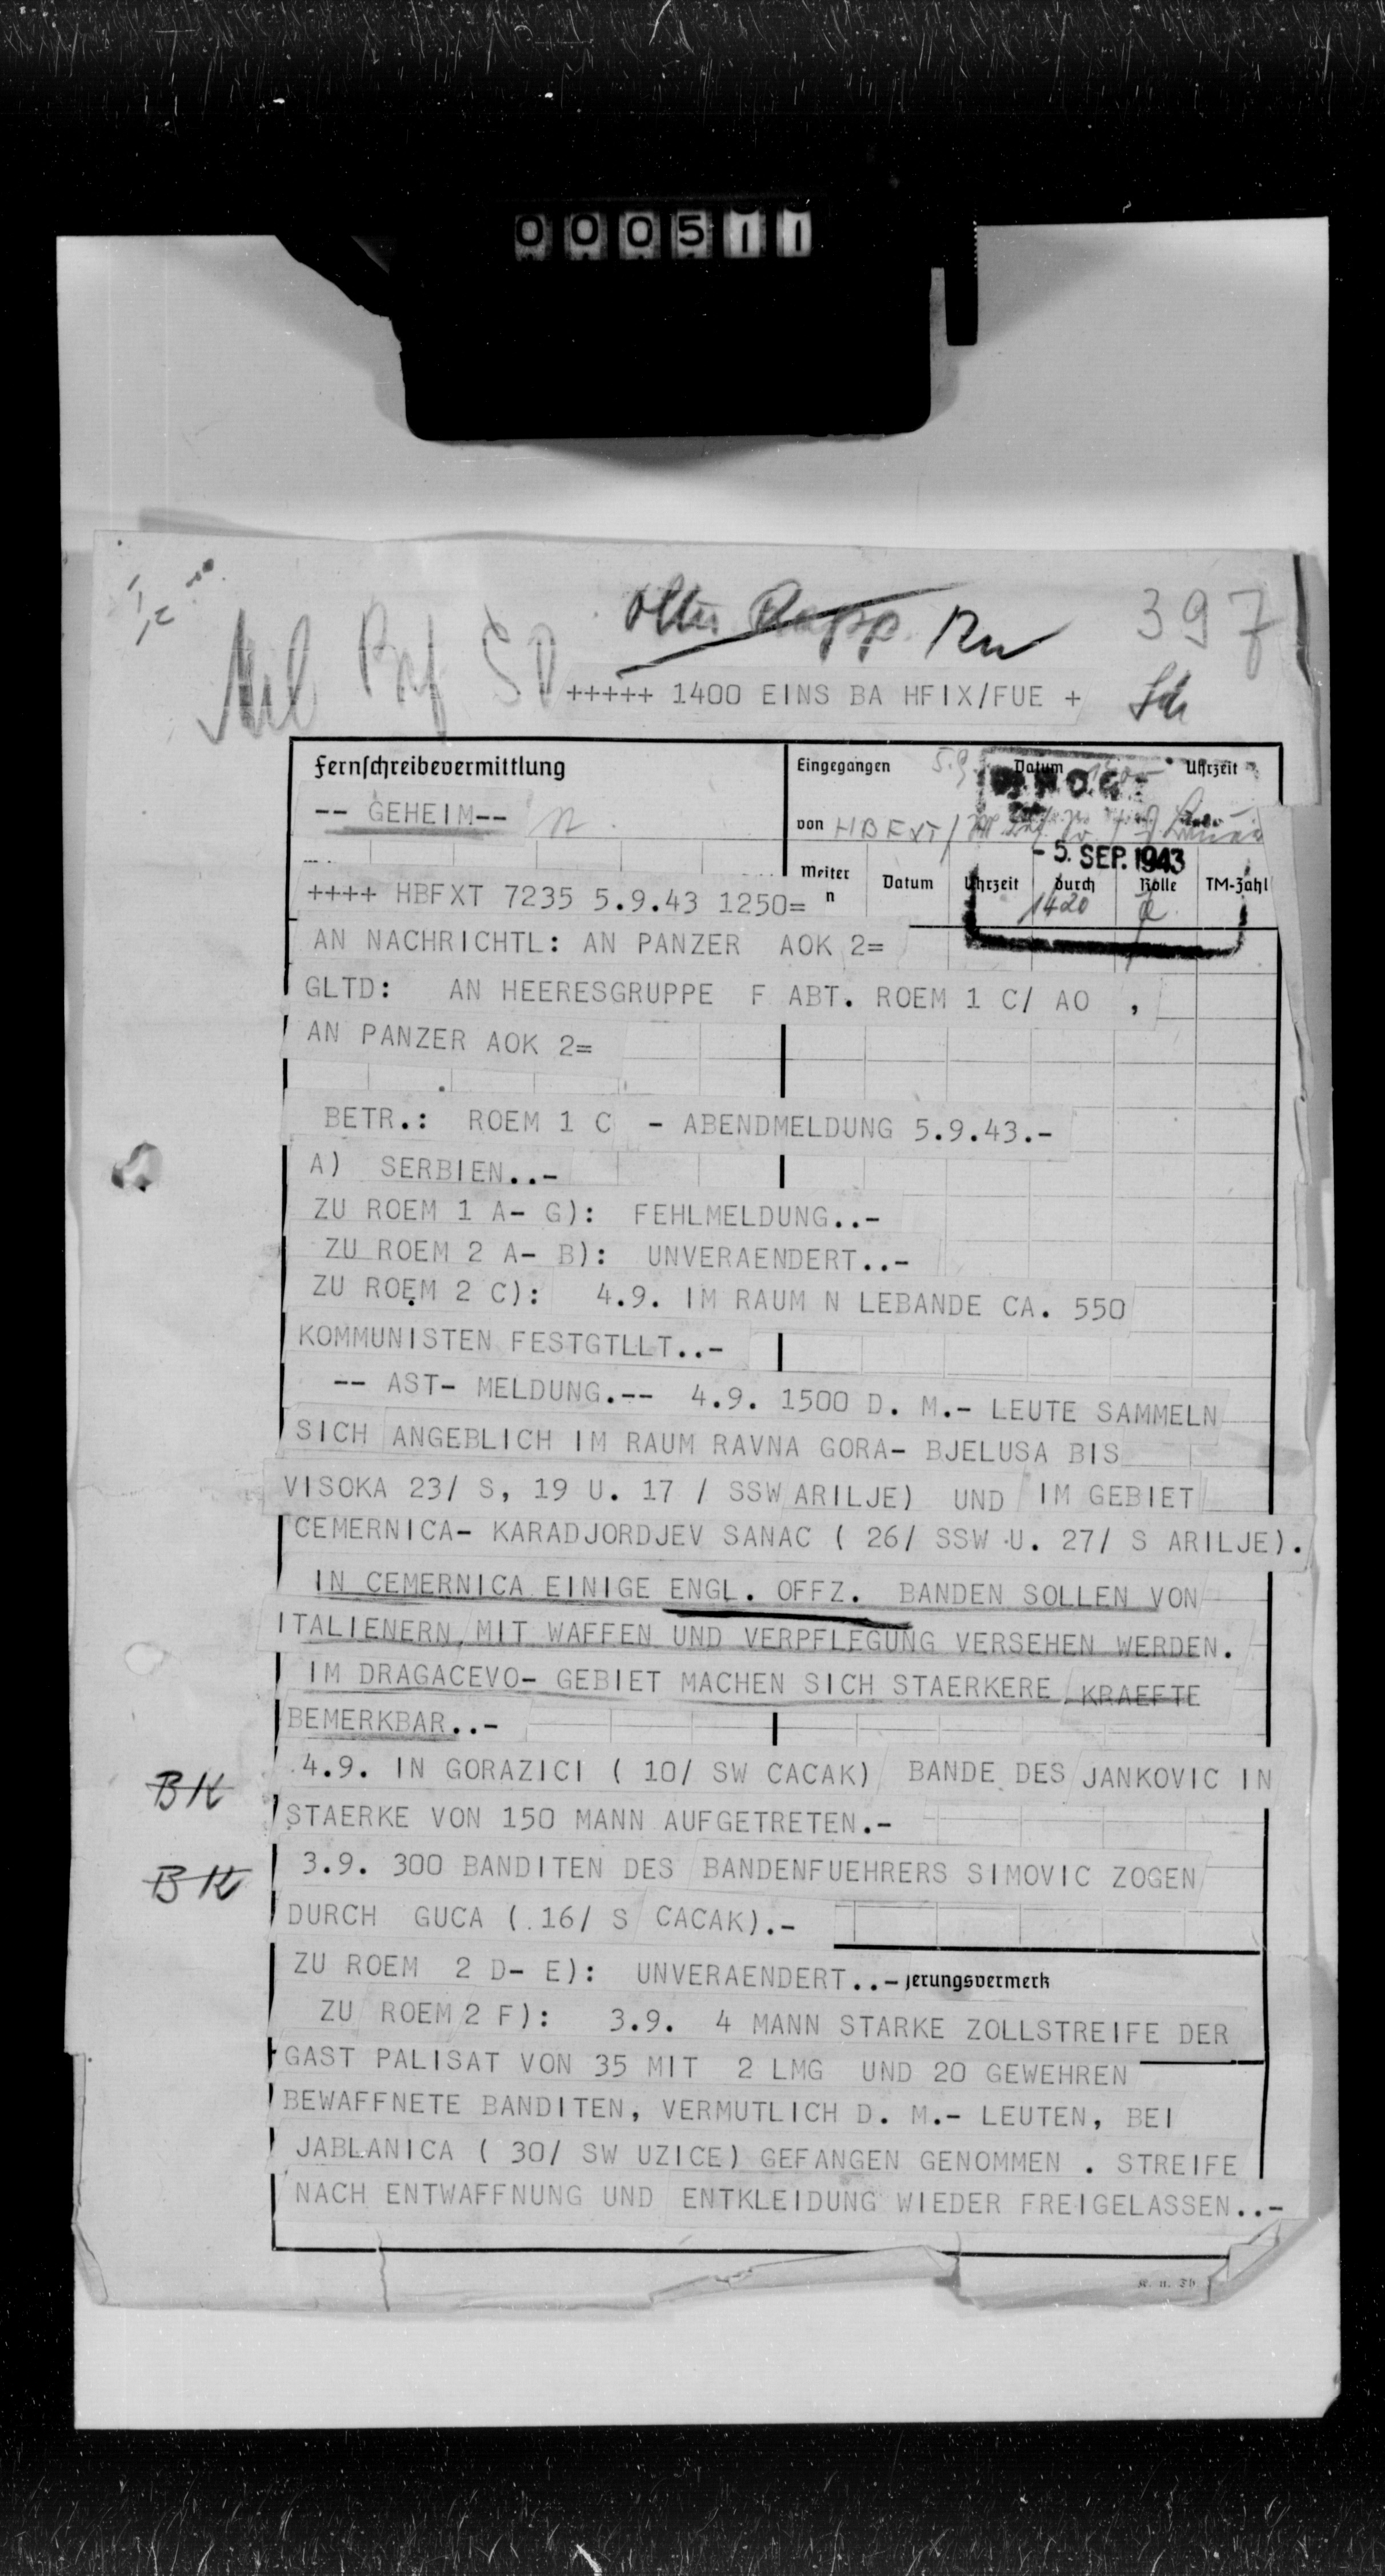 000511
397
+++++ 1400 EINS BA HFIX/FUE +
Fernschreibevermittlung
Eingegangen Datum Uhrzeit
-- GEHEIM--
von HBFXT/
- 5. SEP. 1943
Datum Uhrzeit durch Rolle TM-Zahl
1420
++++ HBFXT 7235 5.9.43 1250=
AN NACHRICHTL: AN PANZER AOK 2=
GLTD: AN HEERESGRUPPE F ABT. ROEM 1 C/ AO ,
AN PANZER AOK 2=
BETR.: ROEM 1 C - ABENDMELDUNG 5.9.43.-
A) SERBIEN..-
ZU ROEM 1 A- G): FEHLMELDUNG..-
ZU ROEM 2 A- B): UNVERAENDERT..-
ZU ROEM 2 C): 4.9. IM RAUM N LEBANDE CA. 550
KOMMUNISTEN FESTGTLLT..-
-- AST- MELDUNG.-- 4.9. 1500 D. M.- LEUTE SAMMELN
SICH ANGEBLICH IM RAUM RAVNA GORA- BJELUSA BIS
VISOKA 23/ S, 19 U. 17 / SSW ARILJE) UND IM GEBIET
CEMERNICA- KARADJORDJEV SANAC ( 26/ SSW U. 27/ S ARILJE).
IN CEMERNICA EINIGE ENGL. OFFZ. BANDEN SOLLEN VON
ITALIENERN MIT WAFFEN UND VERPFLEGUNG VERSEHEN WERDEN.
IM DRAGACEVO- GEBIET MACHEN SICH STAERKERE KRAEFTE
BEMERKBAR..-
BK 4.9. IN GORAZICI ( 10/ SW CACAK) BANDE DES JANKOVIC IN
STAERKE VON 150 MANN AUFGETRETEN.-
BK 3.9. 300 BANDITEN DES BANDENFUEHRERS SIMOVIC ZOGEN
DURCH GUCA ( 16/ S CACAK).-
ZU ROEM 2 D- E): UNVERAENDERT..- jerungsvermerk
ZU ROEM 2 F): 3.9. 4 MANN STARKE ZOLLSTREIFE DER
GAST PALISAT VON 35 MIT 2 LMG UND 20 GEWEHREN
BEWAFFNETE BANDITEN, VERMUTLICH D. M.- LEUTEN, BEI
JABLANICA ( 30/ SW UZICE) GEFANGEN GENOMMEN . STREIFE
NACH ENTWAFFNUNG UND ENTKLEIDUNG WIEDER FREIGELASSEN..-